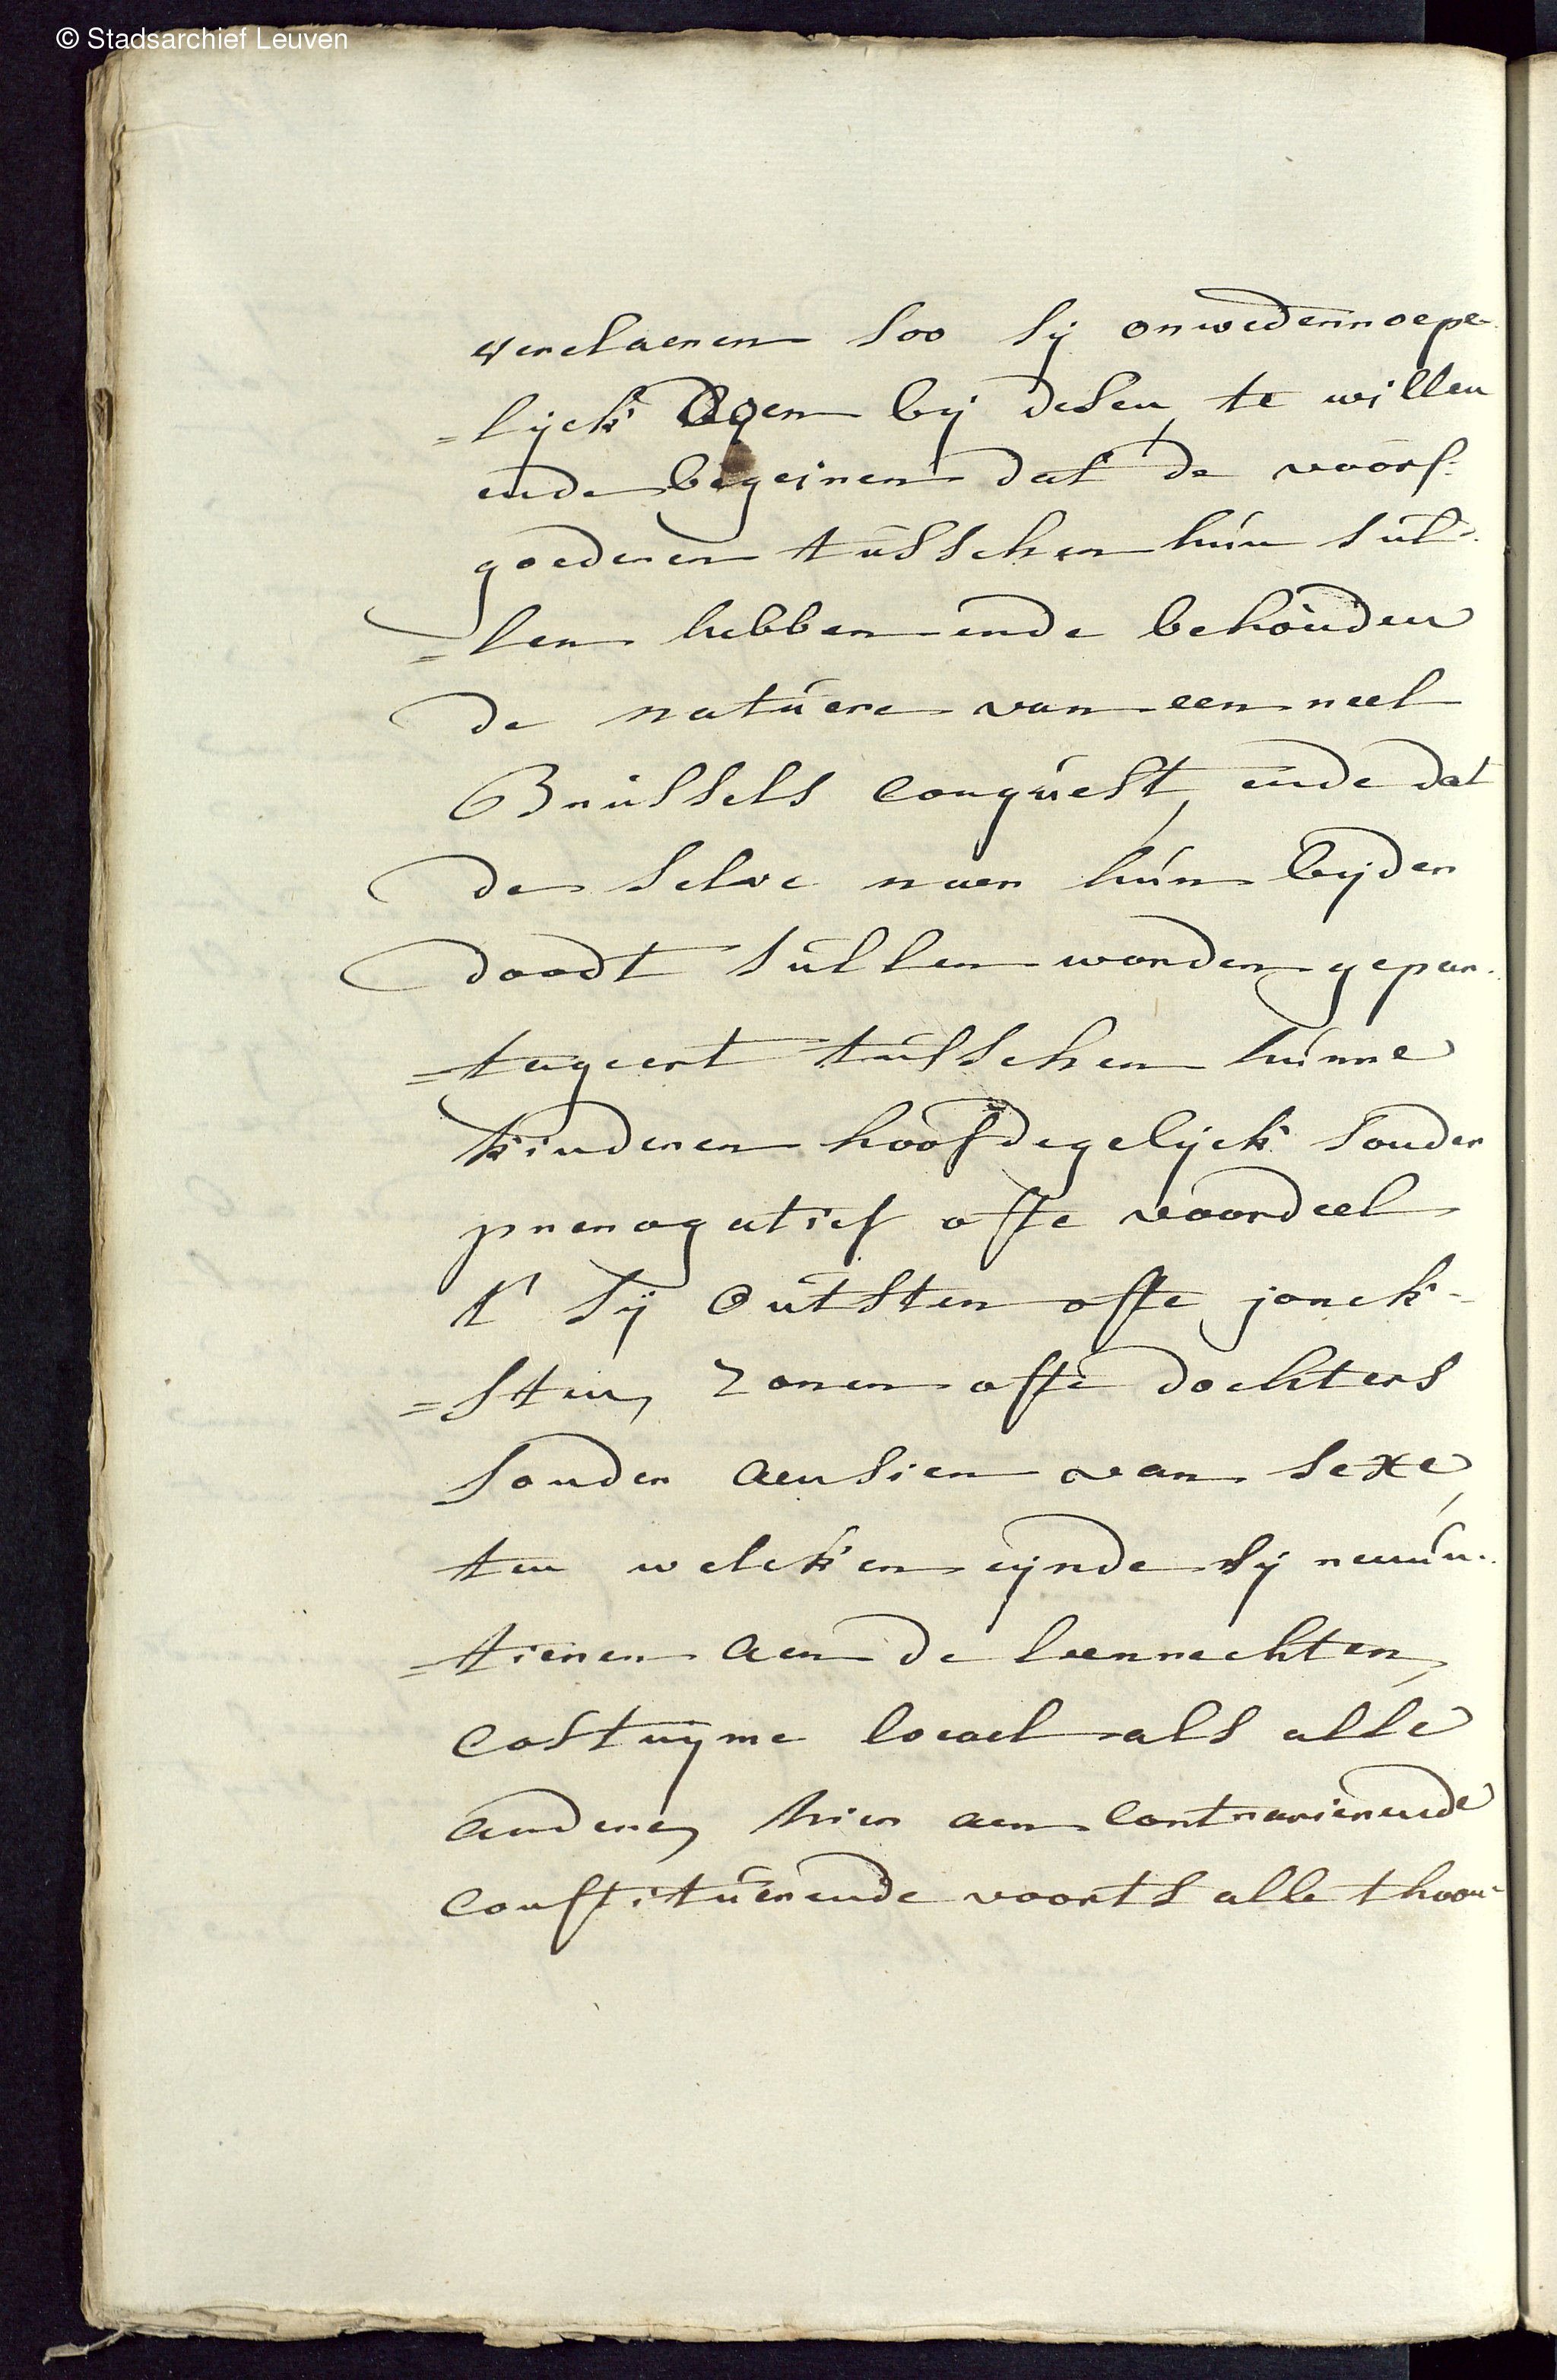 © Stadsarchief Leuven
verclaeren soo sij onwederroepe-
=lijck doen bij desen, te willen
ende begeiren dat de voors:
goederen tússchen hún súl-
=len hebben ende behoúden
de natúere van een neel
Brússels conqúest, ende dat
de selve naer hún beijder
doodt súllen worden gepar-
=tageert tússchen húnne
kinderen hoofdegelijck sonder
prerogatief ofte voordeel
t' sij oútsten ofte jonck-
=sten, zonen ofte dochters
sonder aensien van sexe,
ten welcken eijnde sij renún-
=tieren aen de leenrechten,
costuyme locael als alle
andere, hier aen contrarierende
constitúerende voorts alle thoon-